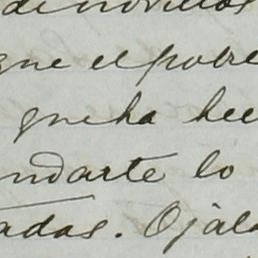 de novillos
que el pobre
que ha hec
ndarte lo
adas. Ojala